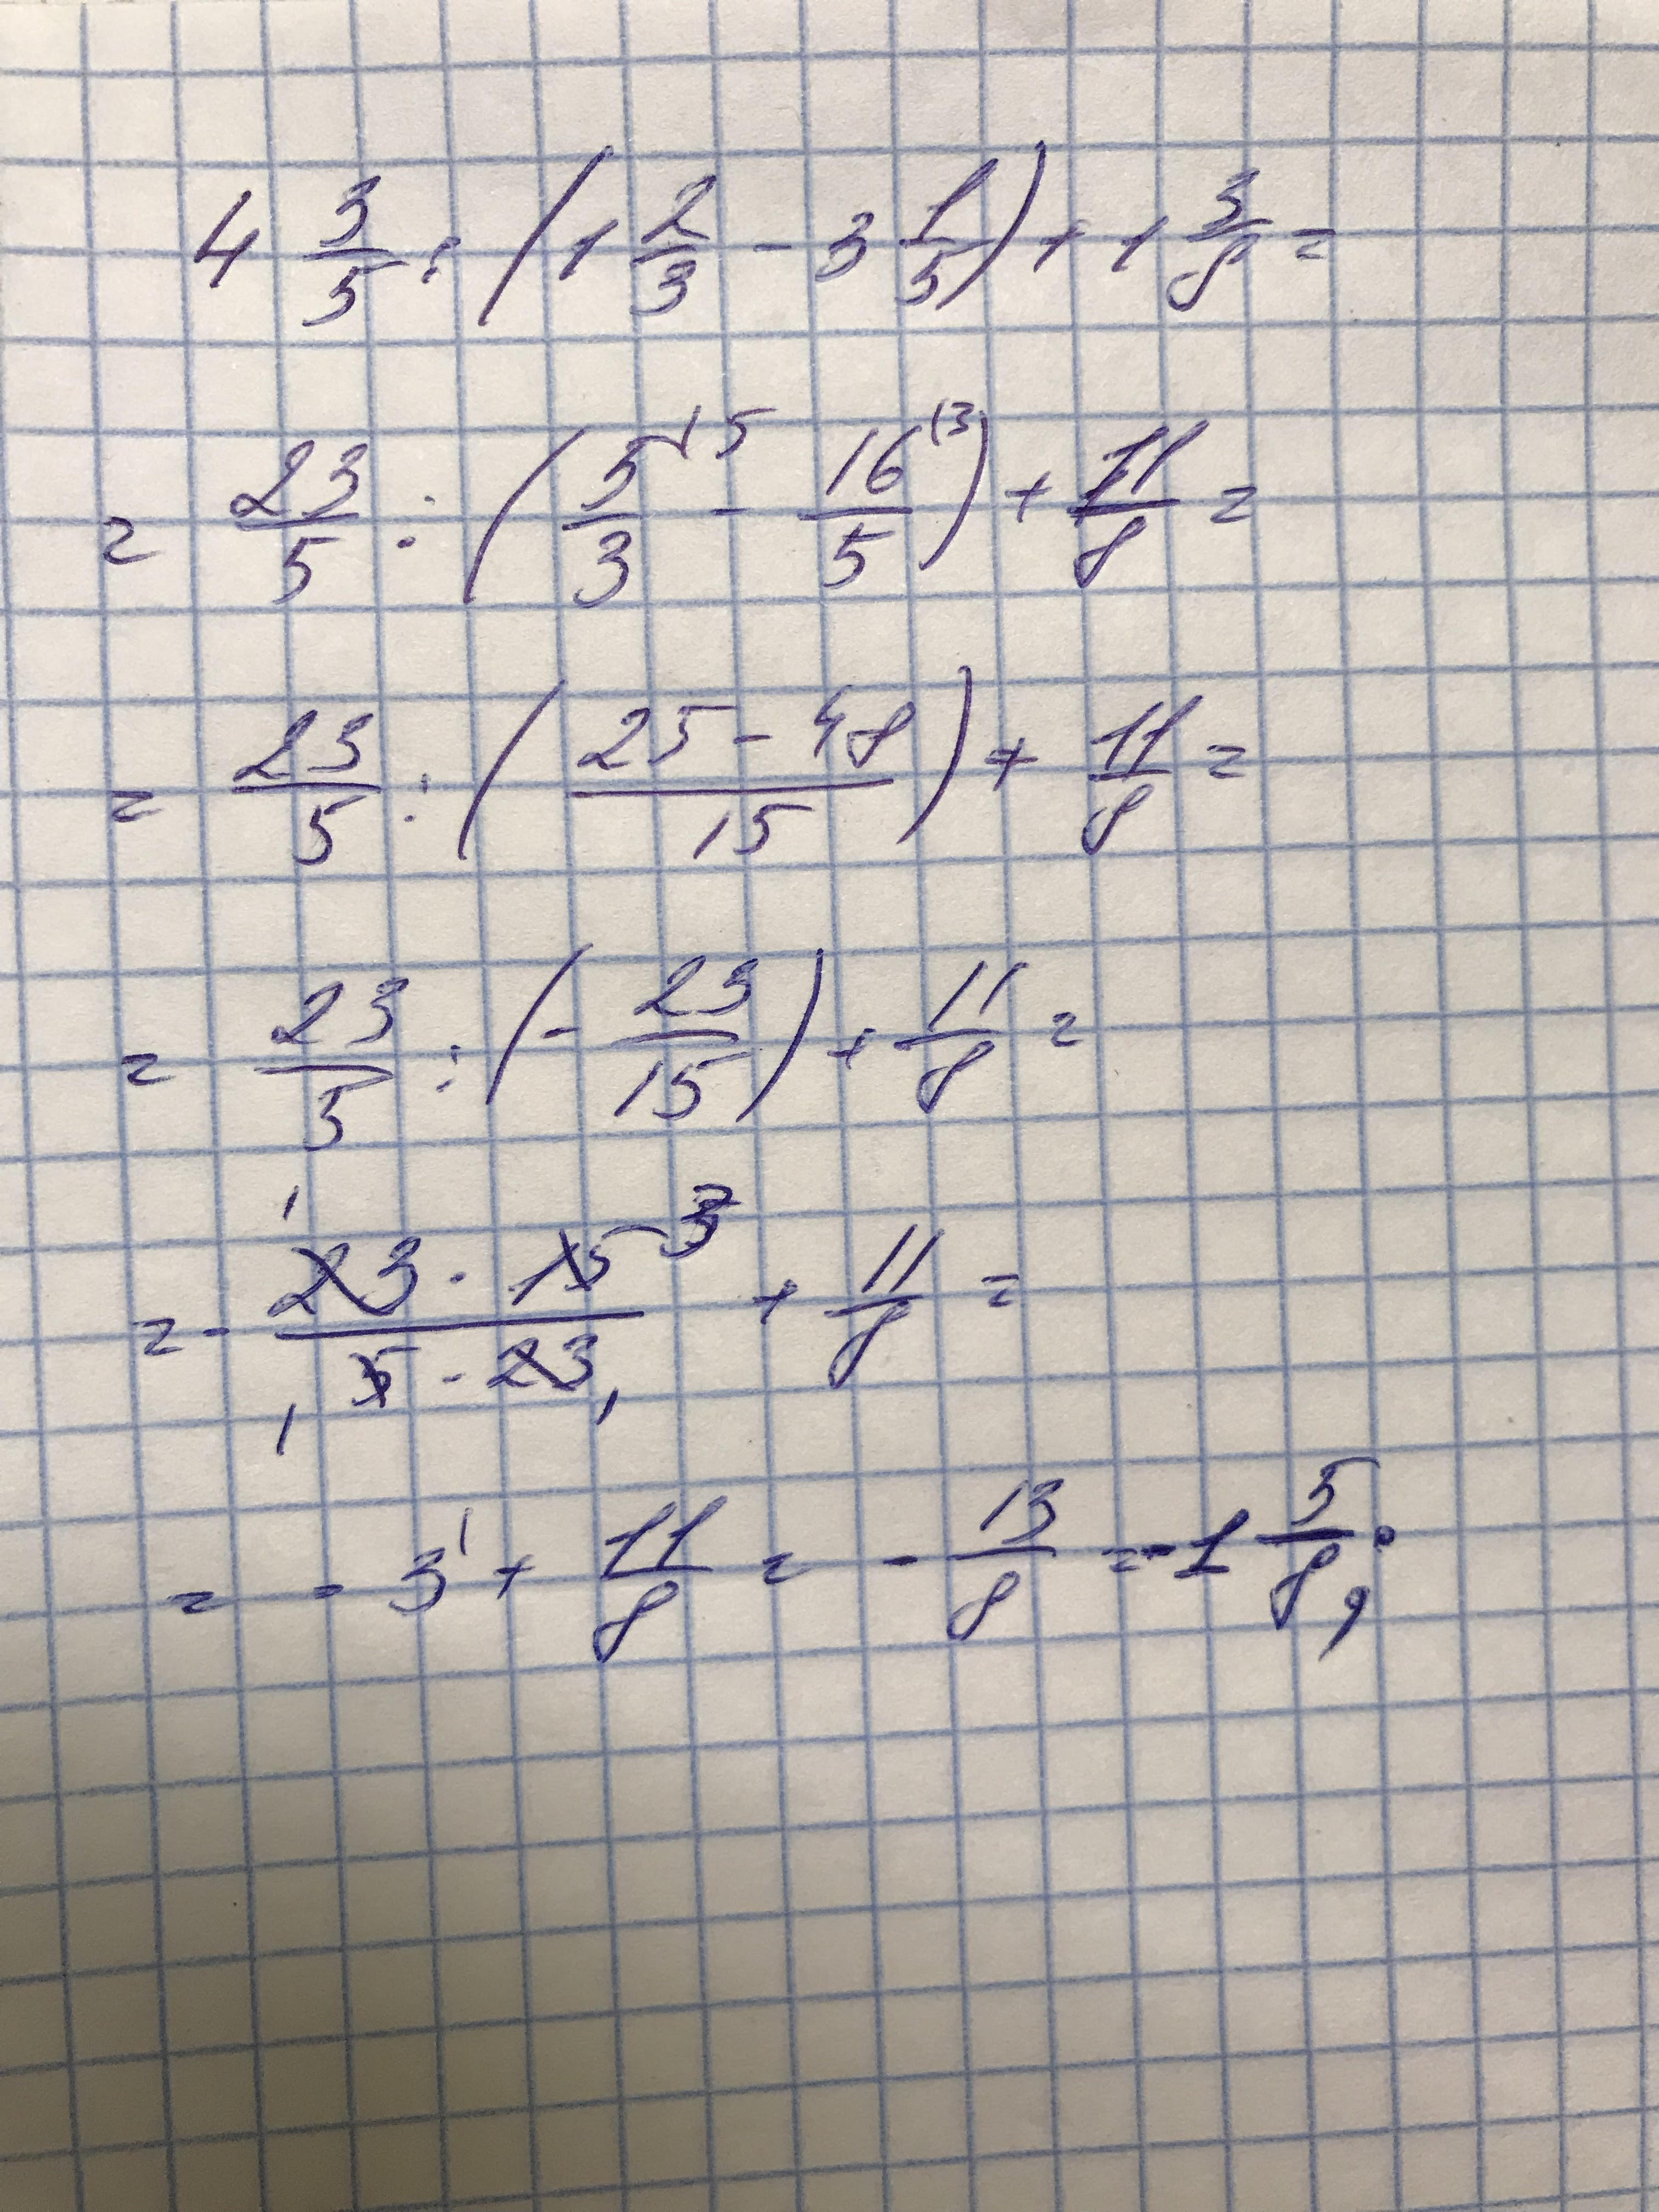 4 3/5 : (1 2/3 - 3 1/5) + 1 3/8 =
= 23/5 : (5/3 ^(5 - 16/5 ^(3) + 11/8 =
= 23/5 : ((25 - 48)/15) + 11/8 =
= 23/5 : (- 23/15) + 11/8 =
= - (23 ^1 · 15 ^3)/(5 _1 · 23 _1) + 11/8 =
= - 3 ^1 + 11/8 = - 13/8 = -1 5/8 ;